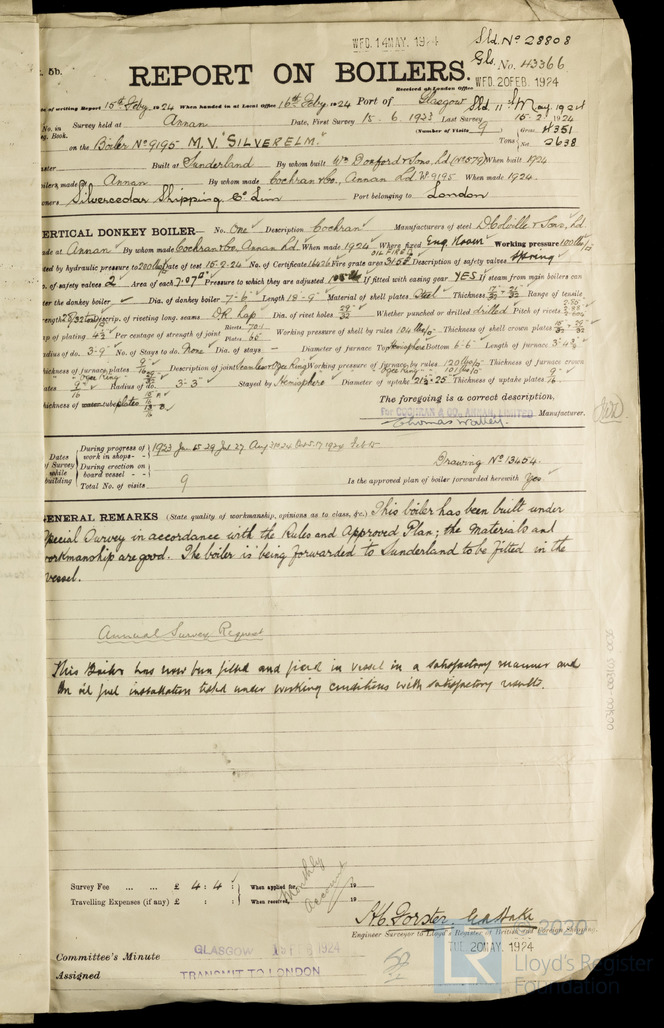 WED. 14 MAY. 1924
Sld. No 28808
Gls. No. 43366
5b.
REPORT ON BOILERS.
Received at London Office WED. 20 FEB. 1924
of writing Report 15th Feby. 1924 When handed in at Local Office 16th Feby. 1924 Port of Glasgow Sld. 11 May 1924
No. in Survey held at Annan Date, First Survey 15-6. 1923 Last Survey 15-2 1924
Book. (Number of Visits 9) Gross 4351
on the Boiler No 9195 M.V. "SILVERELM." Tons Net 2638
Built at Sunderland By whom built Wm Doxford & Sons, Ld (No 579) When built 1924
made at Annan By whom made Cochran & Co., Annan Ld. No 9195 When made 1924.
Silvercedar Shipping Co Lim Port belonging to London
VERTICAL DONKEY BOILER— No. One Description Cochran Manufacturers of steel D Colville & Sons, Ld
made at Annan By whom made Cochran & Co. Annan Ld When made 1924 Where fixed Eng. Room Working pressure 100 lbs
by hydraulic pressure to 200 lbs Date of test 15-2-24 No. of Certificate 16426 Fire grate area Description of safety valves Spring
of safety valves 2 Area of each 7.07 Pressure to which they are adjusted If fitted with easing gear YES If steam from main boilers can
enter the donkey boiler Dia. of donkey boiler 7-6" Length 18-9" Material of shell plates Steel Thickness Range of tensile
strength 28/32 tons Descrip. of riveting long. seams DR Lap Dia. of rivet holes Whether punched or drilled drilled Pitch of rivets
Lap of plating Per centage of strength of joint Rivets 70.1 Plates Working pressure of shell by rules 104 lbs Thickness of shell crown plates
Radius of do. 3-9" No. of Stays to do. None Dia. of stays - Diameter of furnace Top Hemisphere Bottom 6-6" Length of furnace
Thickness of furnace plates Description of joint Seamless Ogee Ring Working pressure of furnace by rules 120 lbs Thickness of furnace crown
plates 9/16 Radius of do. 3-3" Stayed by Hemisphere Diameter of uptake Thickness of uptake plates 9/16
Thickness of water tubes plates
The foregoing is a correct description,
For COCHRAN & CO., ANNAN, LIMITED Manufacturer.
Dates of Survey while building
During progress of work in shops - - 1923 Jun 15
During erection on board vessel - -
Total No. of visits 9
Drawing No 13454.
Is the approved plan of boiler forwarded herewith Yes.
GENERAL REMARKS (State quality of workmanship, opinions as to class, &c.) This boiler has been built under
Special Survey in accordance with the Rules and Approved Plan; the Materials and
workmanship are good. The boiler is being forwarded to Sunderland to be fitted in the
vessel.
Annual Survey Request
This Boiler has now been fitted and fixed in vessel in a satisfactory manner and
an oil fuel installation tested under working conditions with satisfactory results.
Survey Fee ... ... £ 4 : 4 : When applied for, 19
Travelling Expenses (if any) £ : : When received, 19
Monthly Account
A.C. Forster
Engineer Surveyor to Lloyd's Register of British and Foreign Shipping.
TUE. 20 MAY. 1924
Committee's Minute GLASGOW 1924
Assigned TRANSMIT TO LONDON
© 2020
LR
Lloyd's Register
Foundation